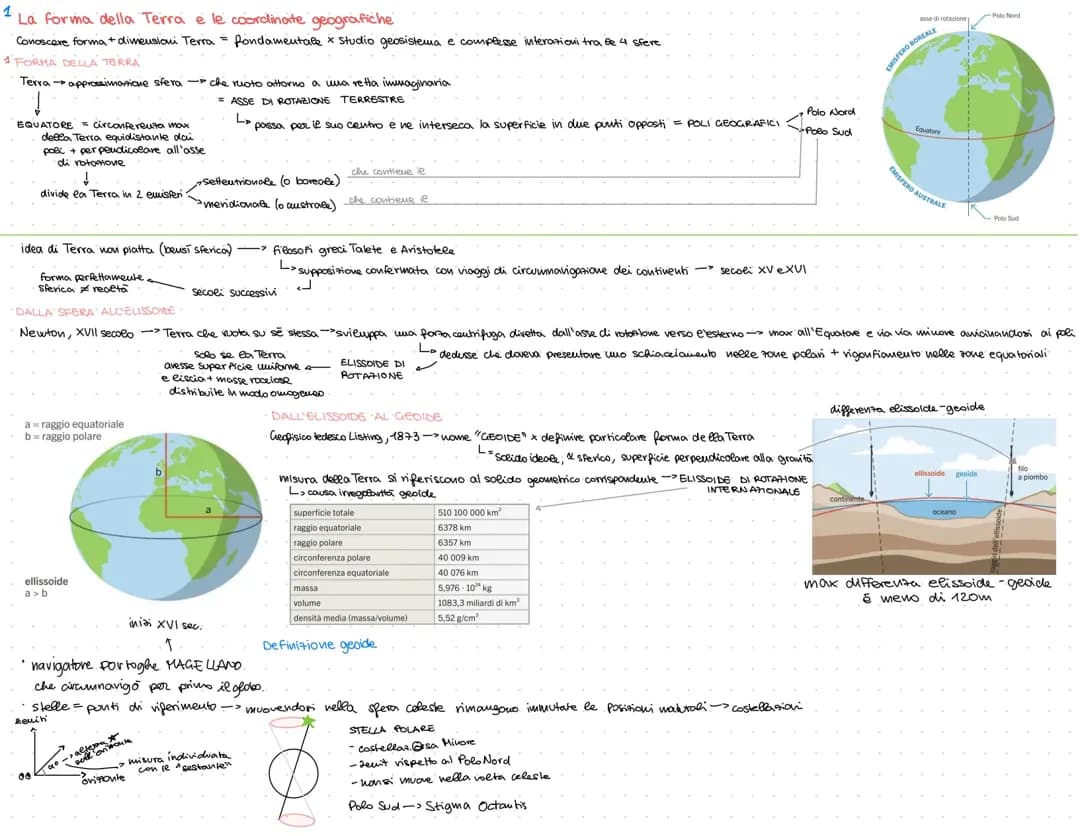 1 La forma della Terra e le coordinate geografiche
Conoscere forma + dimensioni Terra = fondamentale x studio geosistema e complesse interazioni tra le 4 sfere
1 FORMA DELLA TERRA
Terra → approssimazione sfera → che ruota attorno a una retta immaginaria
= ASSE DI ROTAZIONE TERRESTRE
↳ passa per il suo centro e ne interseca la superficie in due punti opposti = POLI GEOGRAFICI
Polo Nord
Polo Sud
EQUATORE = circonferenza max
della Terra equidistante dai
poli + perpendicolare all'asse
di rotazione
divide la Terra in 2 emisferi
settentrionale (o boreale) che contiene il
meridionale (o australe) che contiene il
asse di rotazione
Polo Nord
EMISFERO BOREALE
Equatore
EMISFERO AUSTRALE
Polo Sud
idea di Terra non piatta (bensì sferica) → filosofi greci Talete e Aristotele
↳ supposizione confermata con viaggi di circumnavigazione dei continenti → secoli XV e XVI
forma perfettamente
sferica ≠ realtà
secoli successivi
DALLA SFERA ALL'ELISSOIDE
Newton, XVII secolo → Terra che ruota su sé stessa → sviluppa una forza centrifuga diretta dall'asse di rotazione verso l'esterno → max all'Equatore e via via minore avvicinandosi ai poli
↳ dedusse che doveva presentare uno schiacciamento nelle zone polari + rigonfiamento nelle zone equatoriali
ELISSOIDE DI
ROTAZIONE
solo se la Terra
avesse superficie uniforme
e liscia + masse rocciose
distribuite in modo omogeneo
a = raggio equatoriale
b = raggio polare
b
a
ellissoide
a > b
DALL'ELISSOIDE AL GEOIDE
Geofisico tedesco Listing, 1873 → nome "GEOIDE" x definire particolare forma della Terra
↳ = solido ideale, sferico, superficie perpendicolare alla gravità
misura della Terra si riferiscono al solido geometrico corrispondente → ELISSOIDE DI ROTAZIONE
INTERNAZIONALE
↳ causa irregolarità geoide
superficie totale 510 100 000 km²
raggio equatoriale 6378 km
raggio polare 6357 km
circonferenza polare 40 009 km
circonferenza equatoriale 40 076 km
massa 5,976 · 10²⁴ kg
volume 1083,3 miliardi di km³
densità media (massa/volume) 5,52 g/cm³
differenza elissoide - geoide
ellissoide
geoide
filo
a piombo
continente
oceano
max differenza elissoide - geoide
è meno di 120m
Definizione geoide
inizi XVI sec.
navigatore portoghe MAGELLANO
che circumnavigò per primo il globo.
stelle = punti di riferimento → muovendosi nella sfera celeste rimangono immutate le posizioni naturali → costellazioni
zenit
altezza
sull'orizzonte
orizzonte
misura individuata
con il "sestante"
STELLA POLARE
- costellaz. Orsa Minore
- zenit rispetto al Polo Nord
- non si muove nella volta celeste
Polo Sud → Stigma Octantis